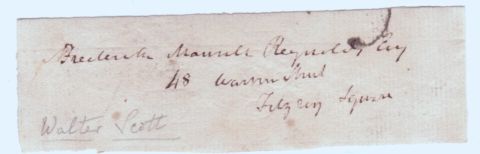 Frederick Mansell Reynolds Esq
48 Warren Street
Fitzroy Square
Walter Scott